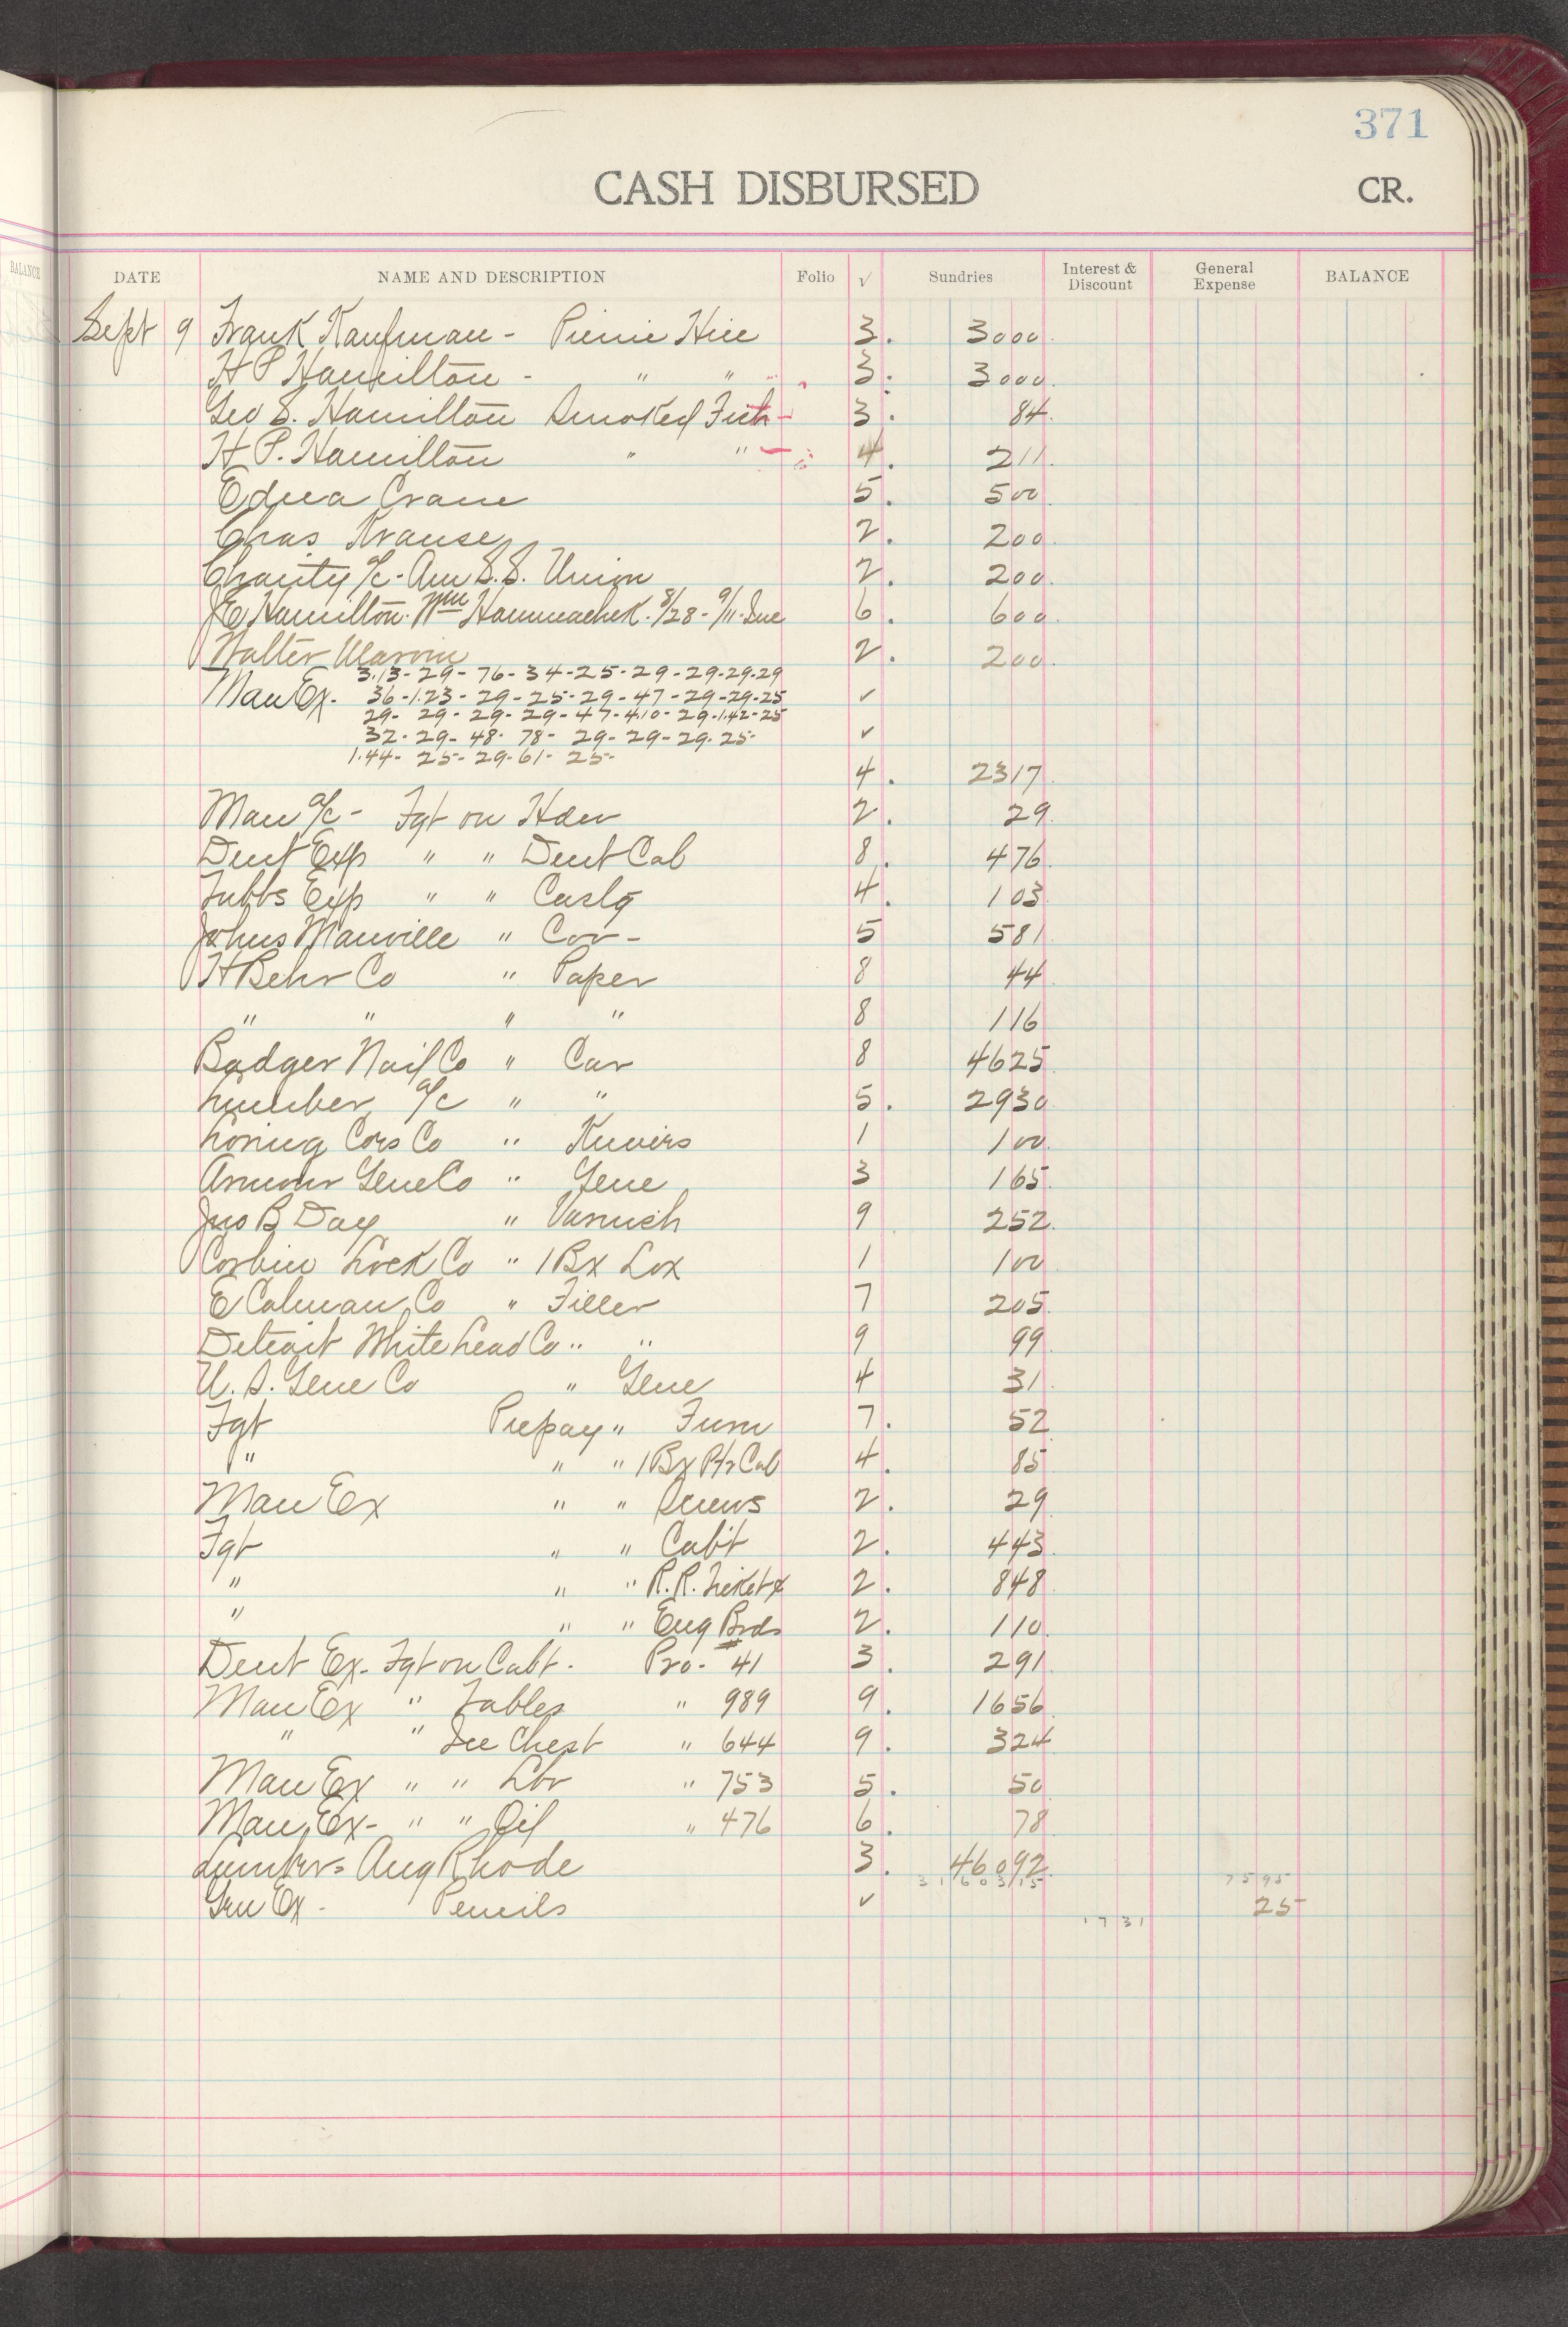 371
CASH DISBURSED CR.
BALANCE
DATE NAME AND DESCRIPTION Folio √ Sundries Interest & Discount General Expense BALANCE
Sept 9 Frank Kaufman - Picnic Hill 3. 3000
H P Hamilton - " " 3. 3000
Geo S. Hamilton Smoked Fish - 3. 84
H P. Hamilton " " - 4. 211
Edna Crane 5. 500
Chas Krause 2. 200
Charity a/c - Am S.S. Union 2. 200
J E Hamilton. Wm Hammachek. 8/28 - 9/11. Inc 6. 600
Walter 2. 200
3.13 - 29 - 76 - 34 - 25 - 29 - 29 - 29 - 29
Man Ex. 36 - 1.23 - 29 - 25 - 29 - 47 - 29 - 29 - 25 ✓
29 - 29 - 29 - 29 - 47 - 4.10 - 29 - 1.42 - 25
32 - 29 - 48 - 78 - 29 - 29 - 29 - 25 ✓
1.44 - 25 - 29 - 61 - 25 -
4. 2317
Man a/c - Fgt on Hdw 2. 29
Dent Exp " " Dent Cab 8. 476
Tubbs Exp " " Caslg 4. 103
Johns Manville " Cov - 5 581
H Behr Co " Paper 8 44
" " " " 8 116
Badger Nail Co " Car 8 4625
Lumber a/c " " 5. 2930
Loring Coes Co " Knives 1 100
Armour Glue Co " Glue 3 165
Jno B Day " Varnish 9 252
Corbin Lock Co " 1 Bx Lox 1 100
E Calman Co " Filler 7 205
Detroit White Lead Co " " 9 99
U. S. Glue Co " Glue 4 31
Fgt Prepay " Furn 7. 52
" " " 1 Bx Ptr Cab 4. 85
Man Ex " " Screws 2. 29
Fgt " " Cab't 2. 443
" " " R.R. Ticket x 2. 848
" " " Eng Brds 2. 110
Dent Ex - Fgt on Cabt. Pro - # 41 3. 291
Man Ex " Tables " 989 9. 1656
" " Ice Chest " 644 9. 324
Man Ex " " Lbr " 753 5. 50
Man Ex - " " Oil " 476 6. 78
Lumber = Aug Rhode 3. 46092
3160315 7595
Gen Ex - Pencils ✓ 25
1731